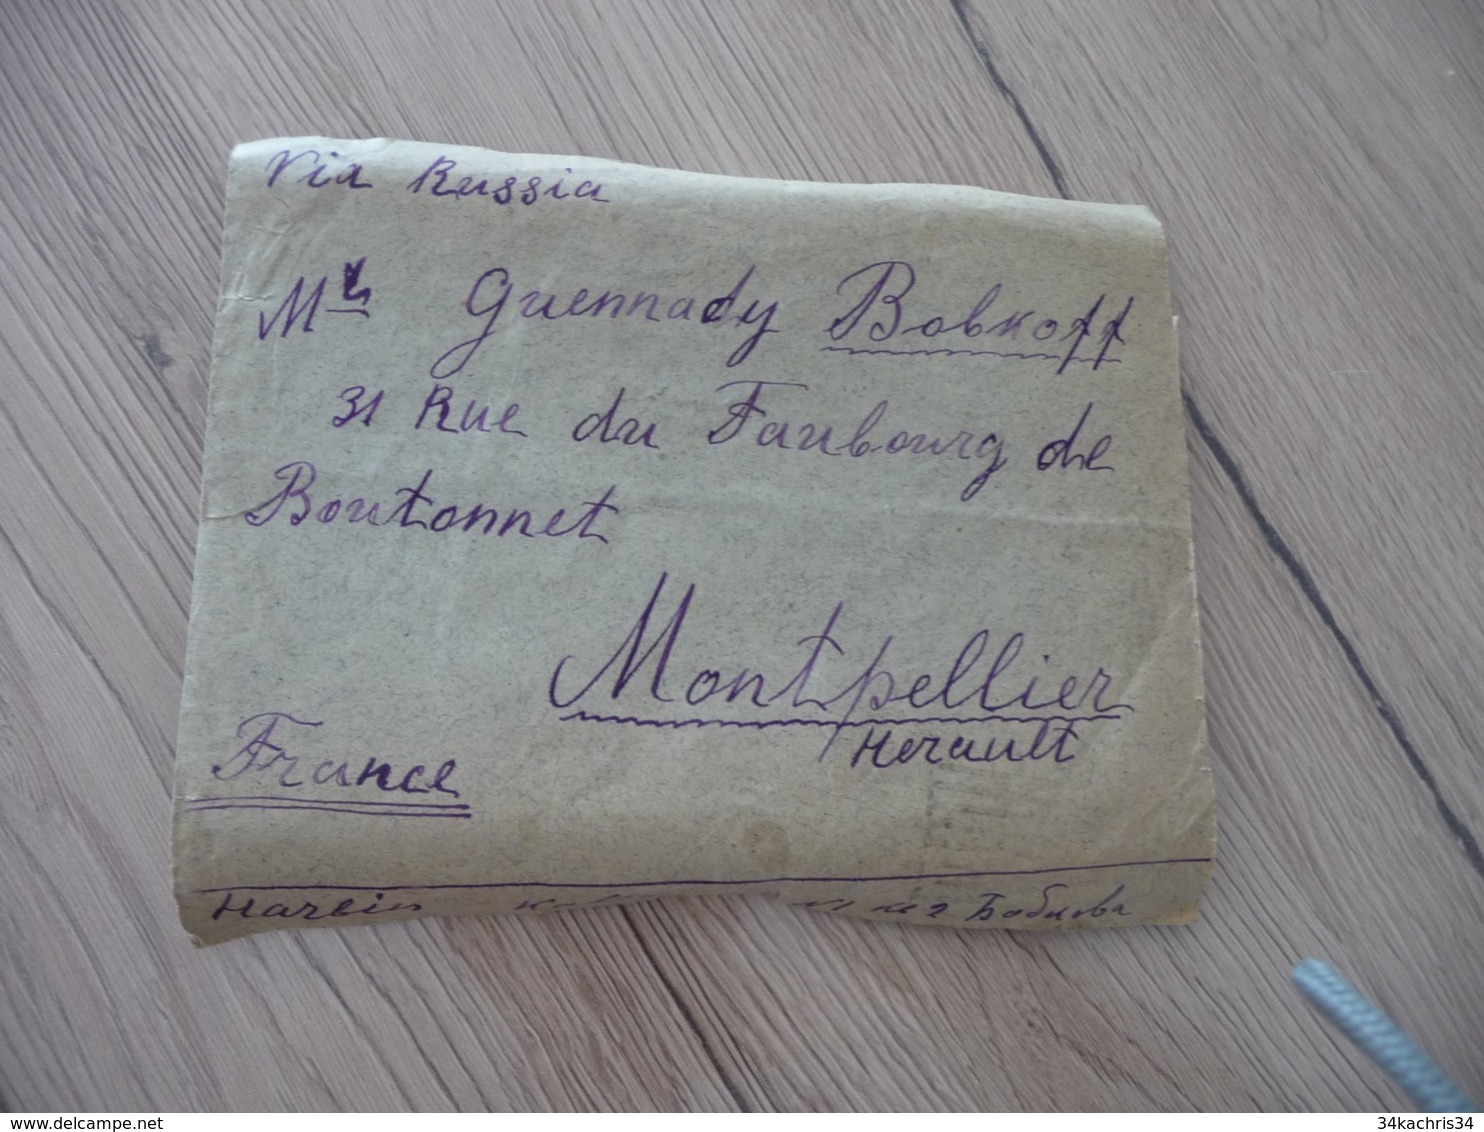 Via Russia
Mr Guennady Bobkoff
31 Rue du Faubourg de
Boutonnet
Montpellier
Herault
France
Harbin № 2 Бобкова
34kachris34